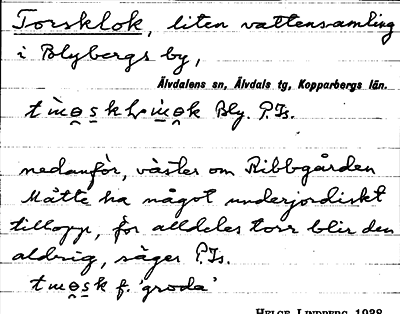 Torsklok, liten vattensamling
i Blybergs by,
Älvdalens sn, Älvdals tg, Kopparbergs län.
Bly. P.Js.
nedanför, väster om Ribbgården
Måtte ha något underjordiskt
tillopp, för alldeles torr blir den
aldrig, säger P.Js.
f. 'groda'
HELGE LINDBERG 1938